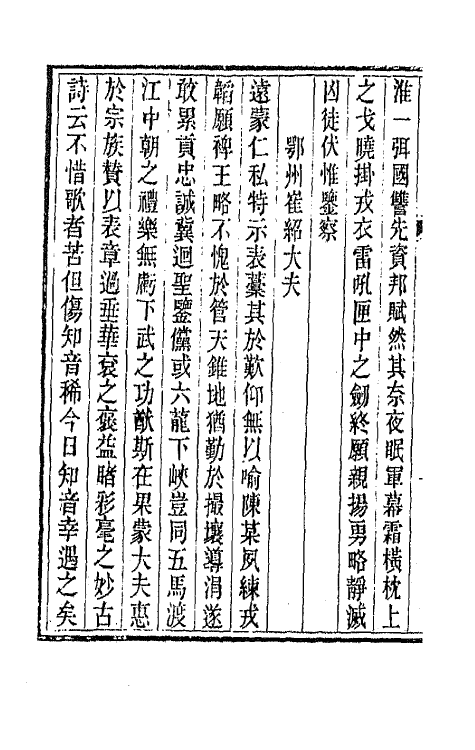 淮一弭國讐先資邦賦然其奈夜眠軍幕霜橫枕上
之戈曉掛戎衣雷吼匣中之劒終願親揚勇略靜滅
囚徒伏惟鑒察
鄂州崔紹大夫
遠蒙仁私特示表藁其於歎仰無以喻陳某夙練戎
韜願裨王略不愧於管天錐地猶勤於撮壤導涓遂
敢累貢忠誠冀迴聖鑒儻或六龍下峽豈同五馬渡
江中朝之禮樂無虧下武之功猷斯在果蒙大夫惠
於宗族贊以表章過垂華袞之褒益睹彩毫之妙古
詩云不惜歌者苦但傷知音稀今日知音幸遇之矣